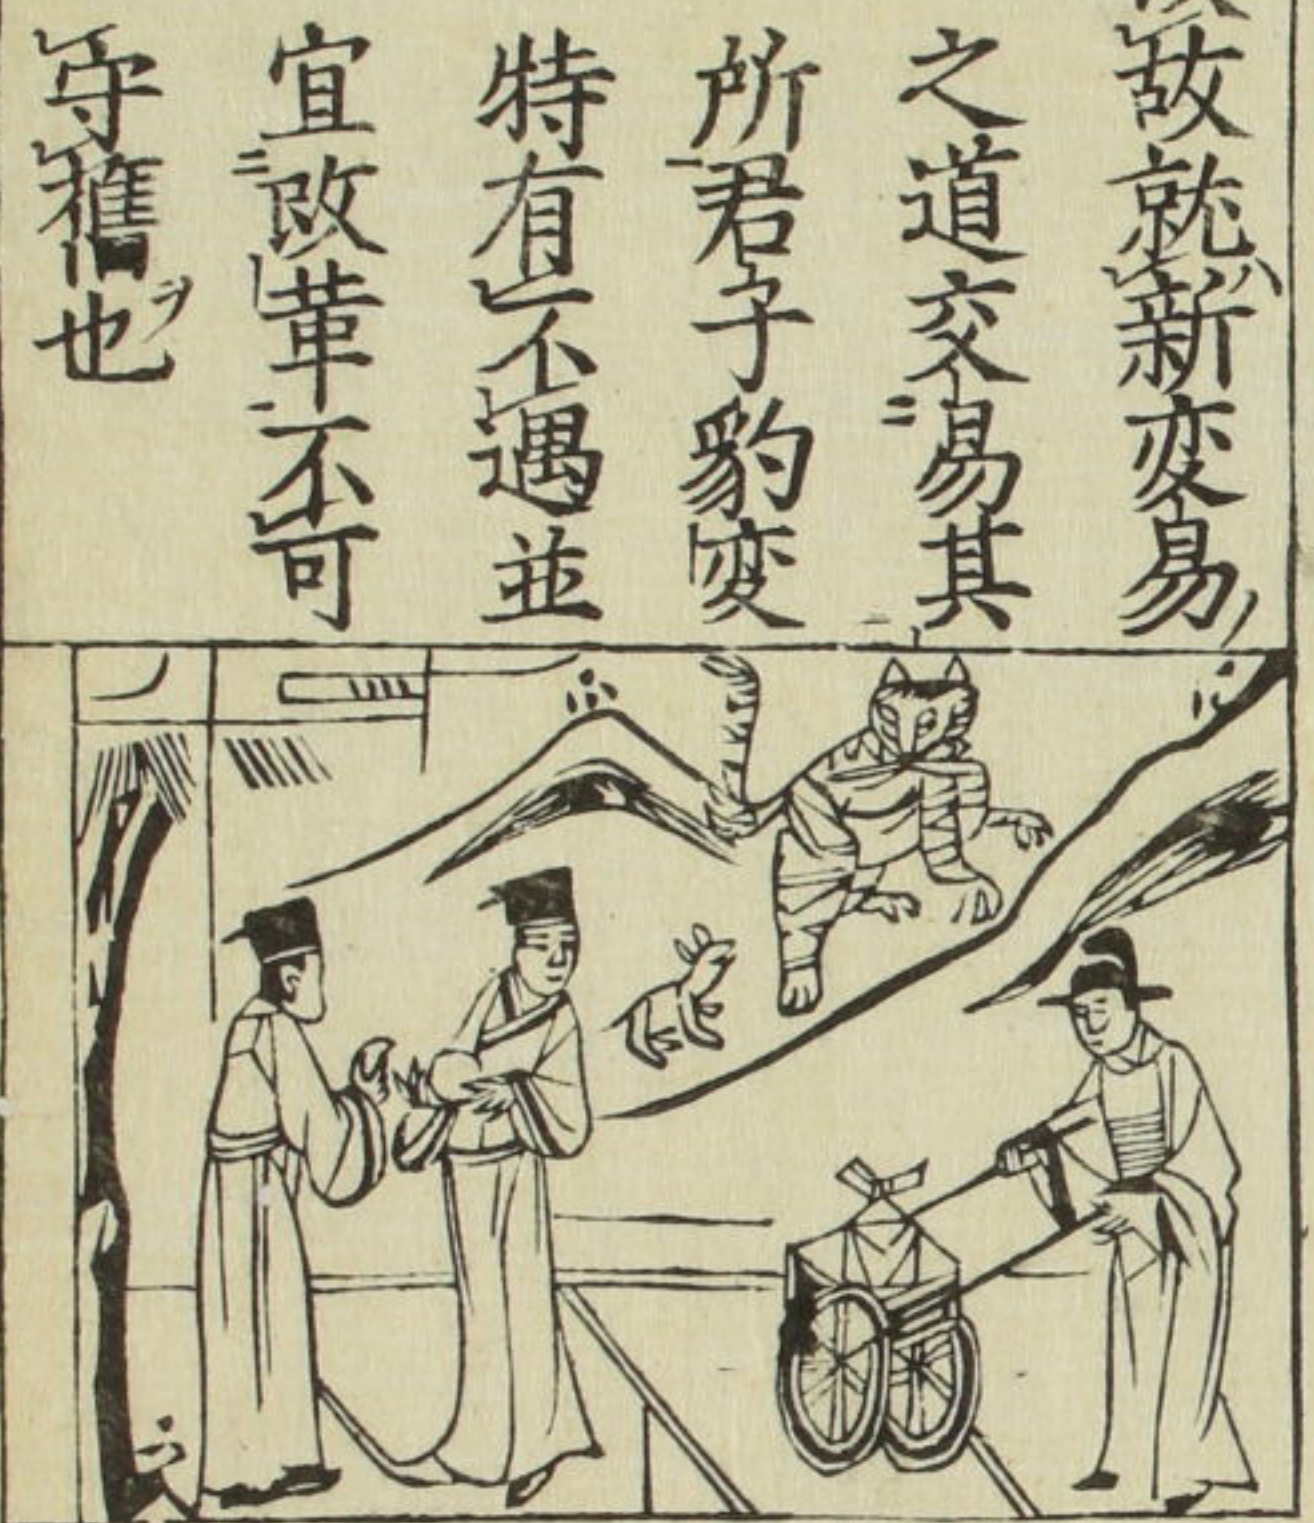 故就新変易
之道交易其
所君子豹変
特有不遇並
宜改革不可
守舊也